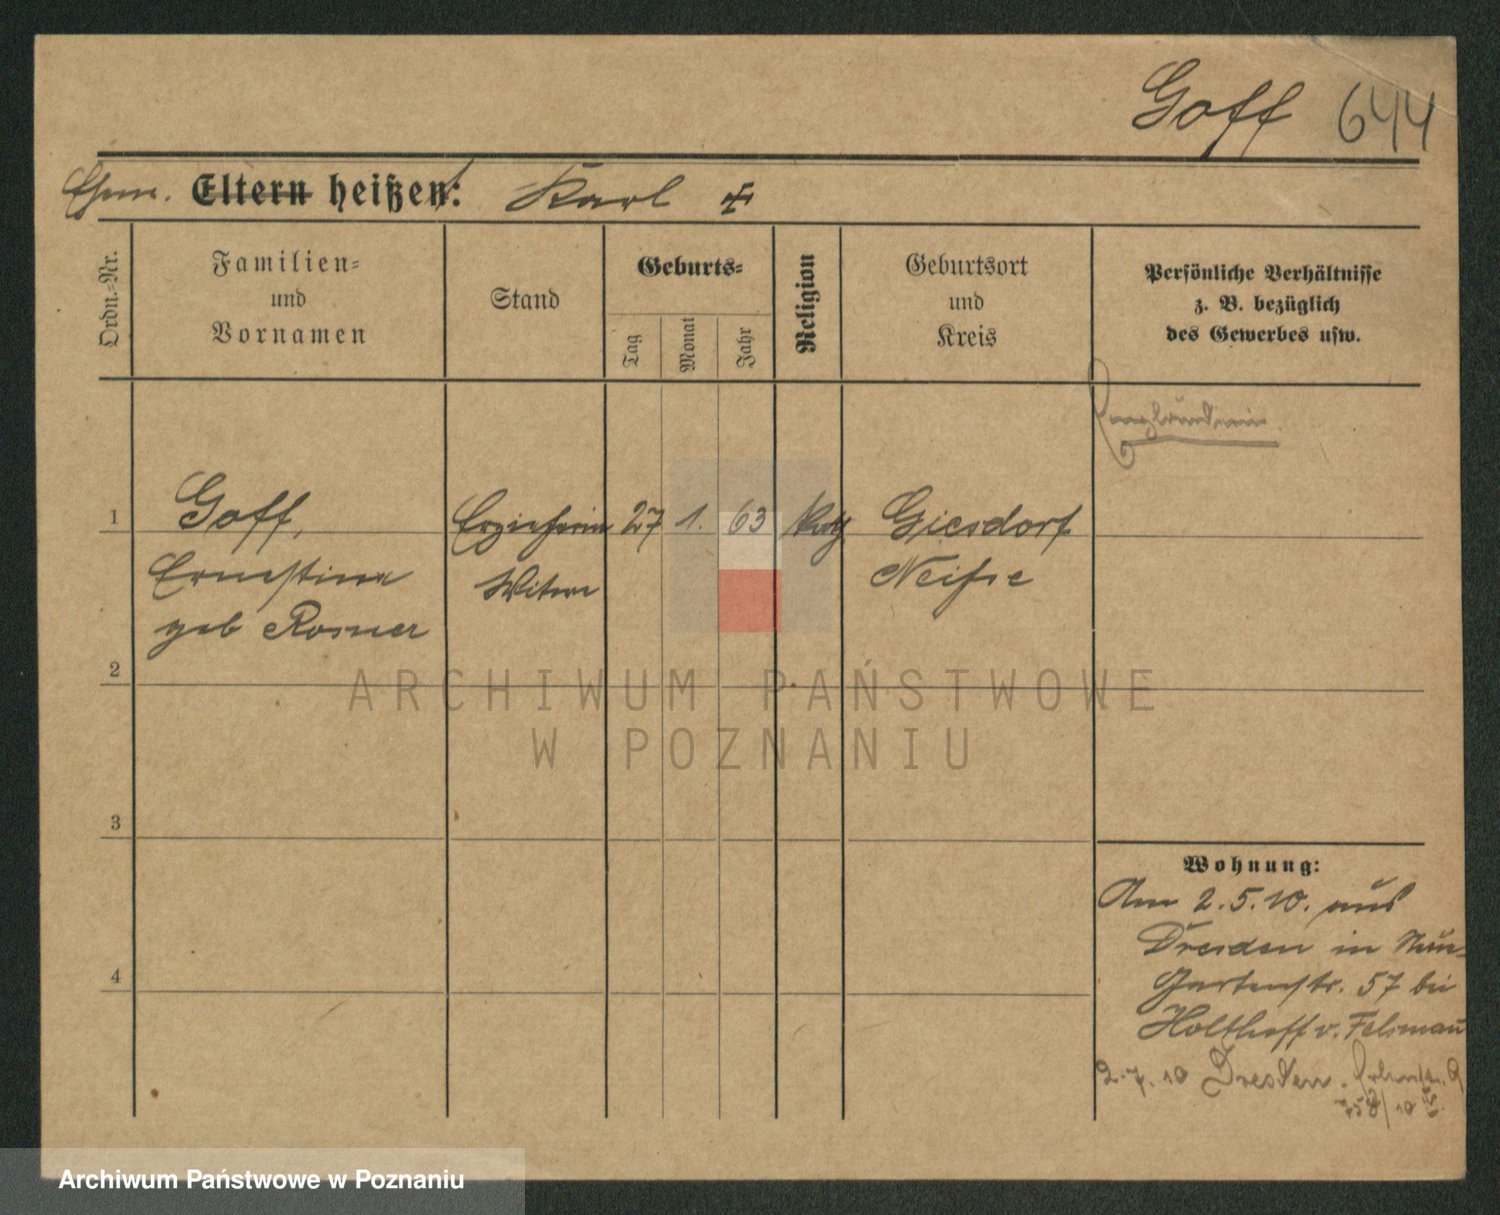 Goff 644
Ehem. Eltern heißen: Karl
Ordn.-Nr.
Familien-
und
Vornamen
Stand
Geburts-
Tag
Monat
Jahr
Religion
Geburtsort
und
Kreis
Persönliche Verhältnisse
z. B. bezüglich
des Gewerbes usw.
1
Goff, Erzieherin 27 1. 63 Kath Giesdorf
Ernestine Witwe Neiße
geb Rosner
2
ARCHIWUM PAŃSTWOWE
W POZNANIU
3
4
Wohnung:
Am 2.5.10. aus
Dresden in
Gartenstr. 57 bei
Holthoff v.
2.7.10 Dresden.
Archiwum Państwowe w Poznaniu